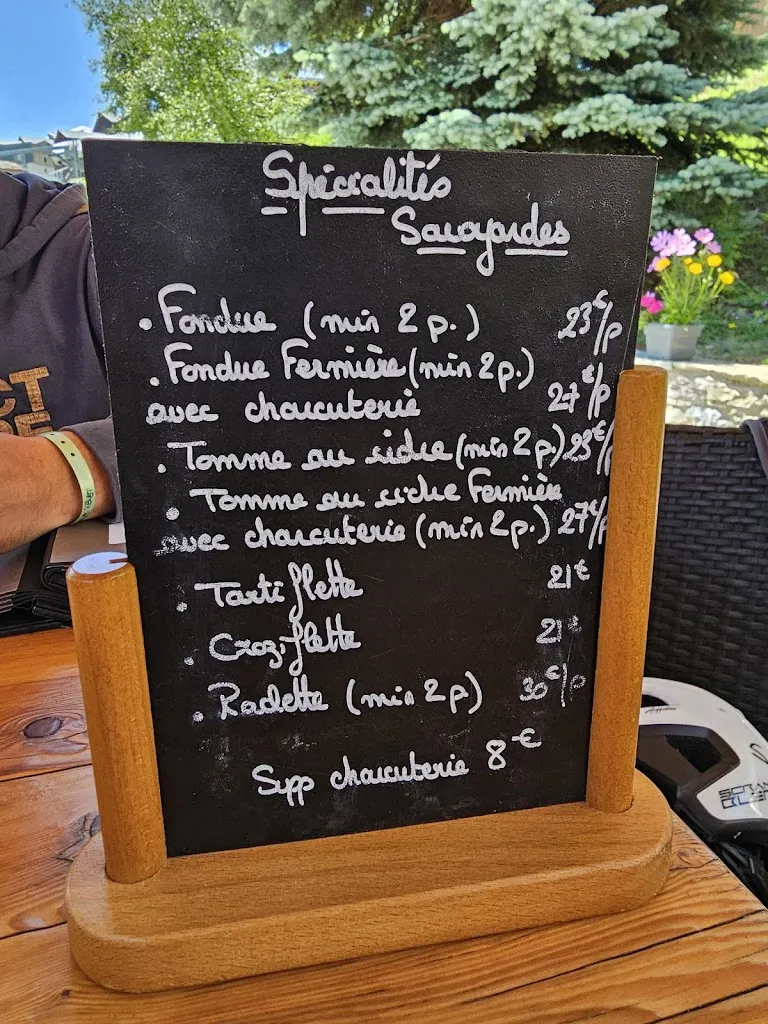 Spécialités
Savoyardes
• Fondue (min 2 p.) 23€/p
• Fondue Fermière (min 2 p.)
avec charcuterie 27€/p
• Tomme au cidre (min 2 p.) 23€/p
• Tomme au cidre Fermière
avec charcuterie (min 2 p.) 27€/p
• Tartiflette 21€
• Croziflette 21€
• Raclette (min 2 p) 30€/p
Supp charcuterie 8€
CT